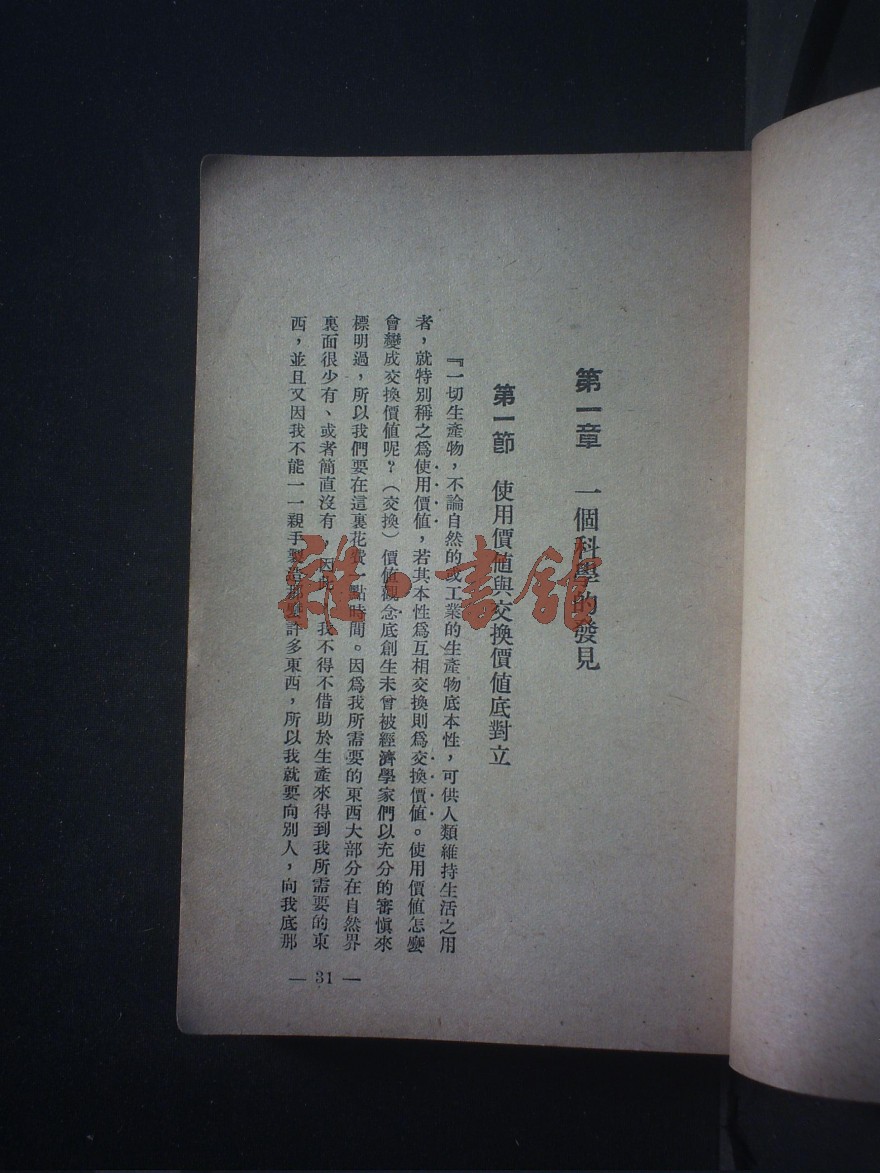 第一章　一個科學的發見
第一節　使用價値與交換價値底對立
『一切生產物，不論自然的或工業的生產物底本性，可供人類維持生活之用
者，就特別稱之爲使用價値，若其本性爲互相交換則爲交換價値。使用價値怎麼
會變成交換價値呢？（交換）價値觀念底創生未曾被經濟學家們以充分的審愼來
標明過，所以我們要在這裏花費一點時間。因爲我所需要的東西大部分在自然界
裏面很少有、或者簡直沒有，因此，我不得不借助於生產來得到我所需要的東
西，並且又因我不能一一親手製造那麼許多東西，所以我就要向別人，向我底那
— 31 —
雜·書舘